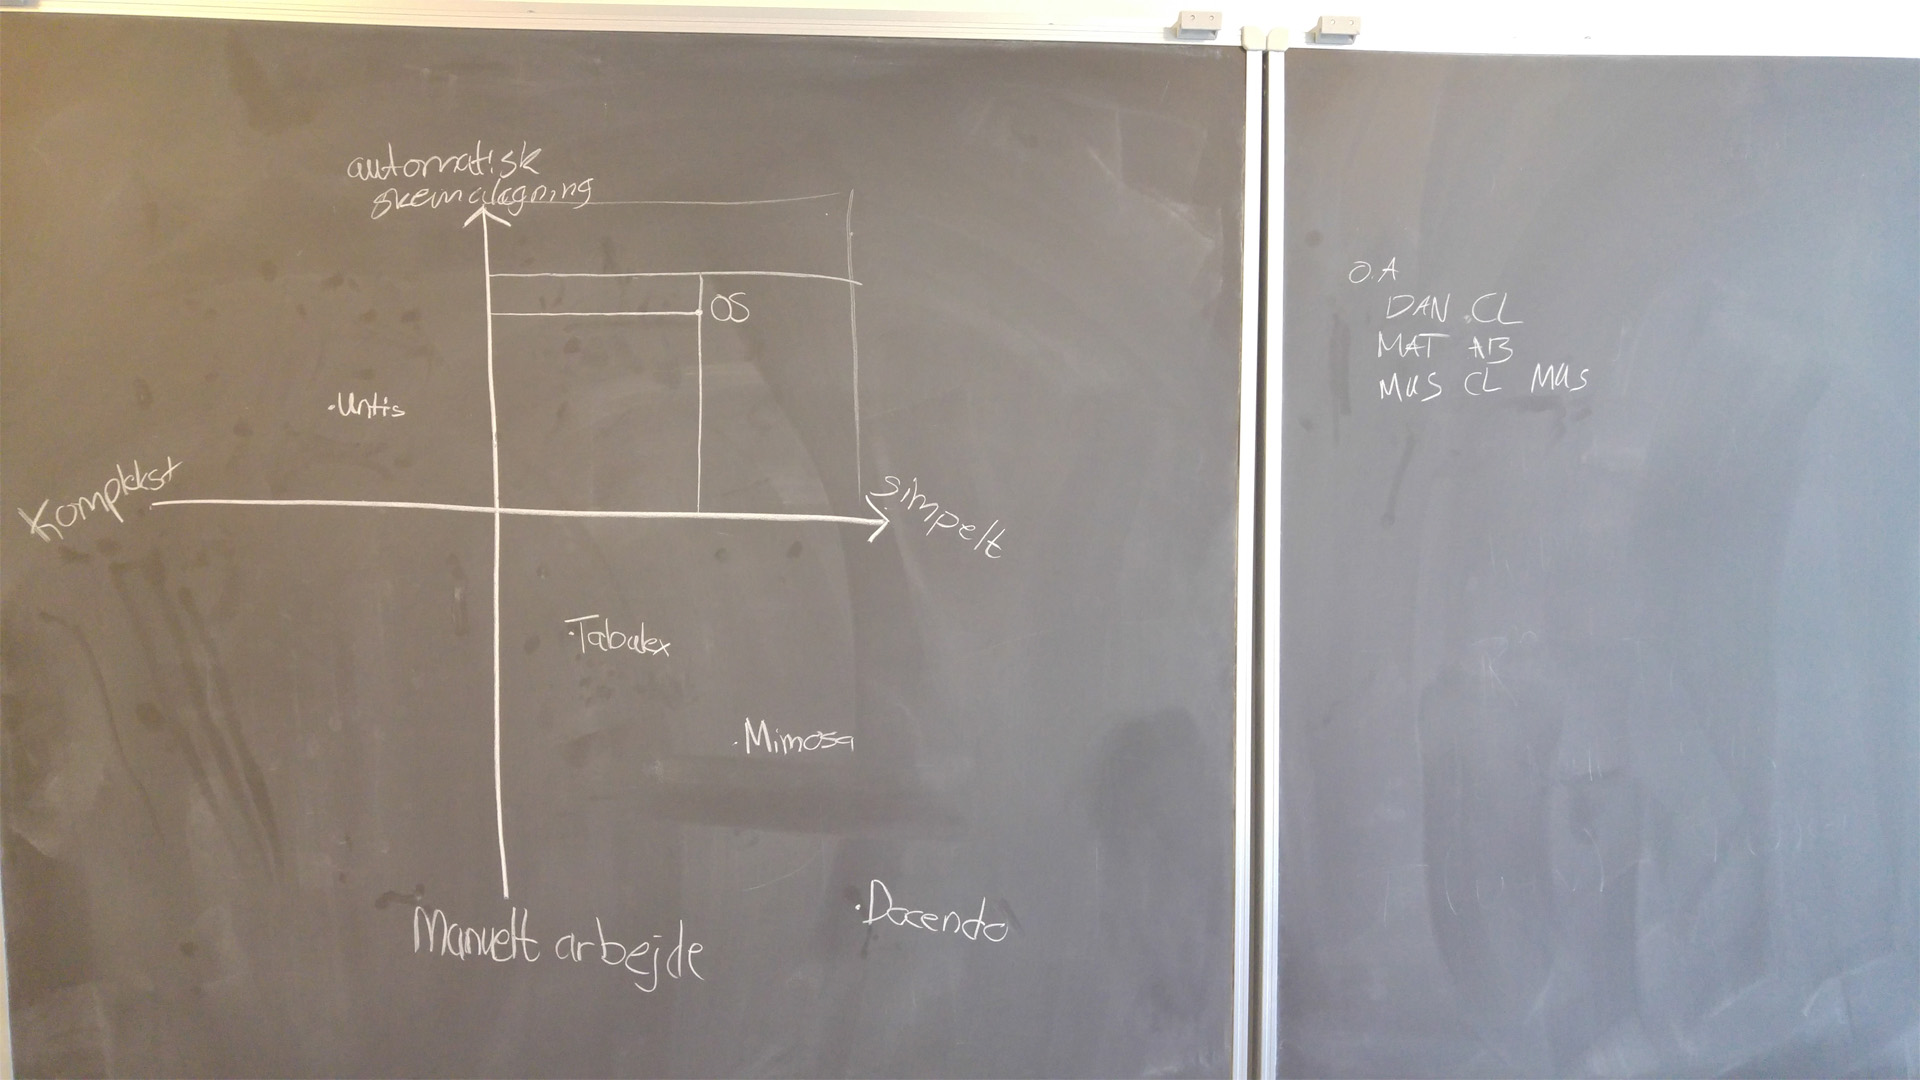 automatisk
skemalagning
OS
.Untis
Komplekst
simpelt
.Tabulex
.Mimosa
.Docendo
Manuelt arbejde
O.A
DAN CL
MAT AB
MUS CL MUS